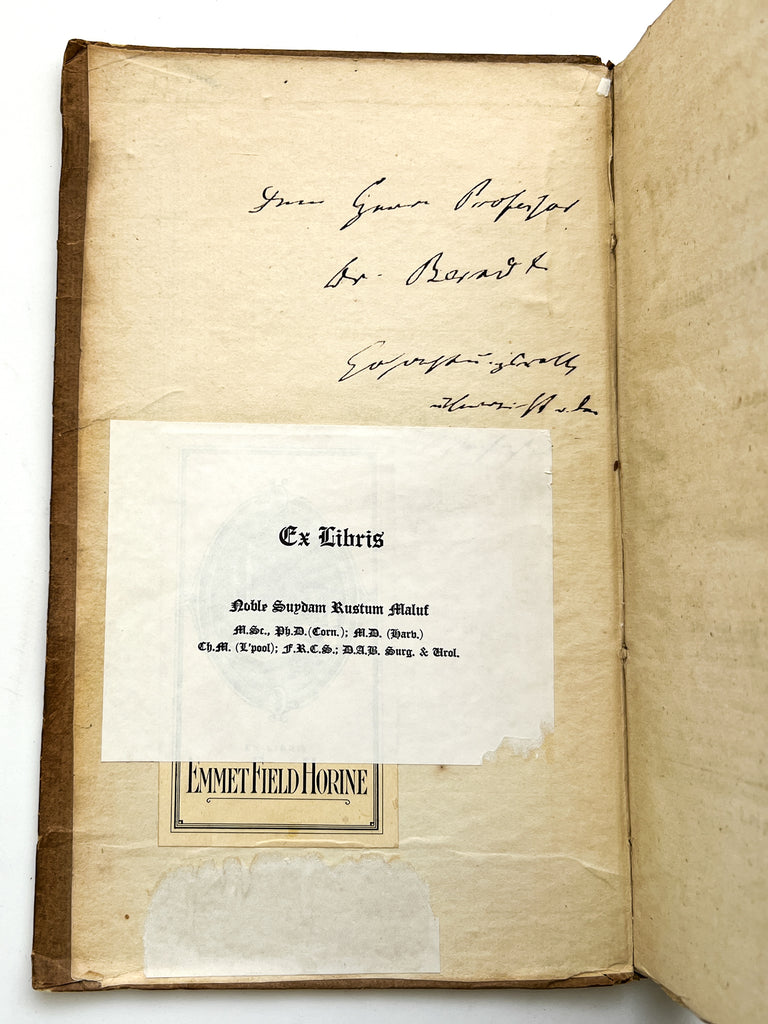 Dem Herrn Professor
Dr. Berndt
Hochachtungsvoll
überreicht v. dem
Ex Libris
Noble Suydam Rustum Maluf
M.Sc., Ph.D.(Corn.); M.D. (Harv.)
Ch.M. (L'pool); F.R.C.S.; D.A.B. Surg. & Urol.
EMMET FIELD HORINE